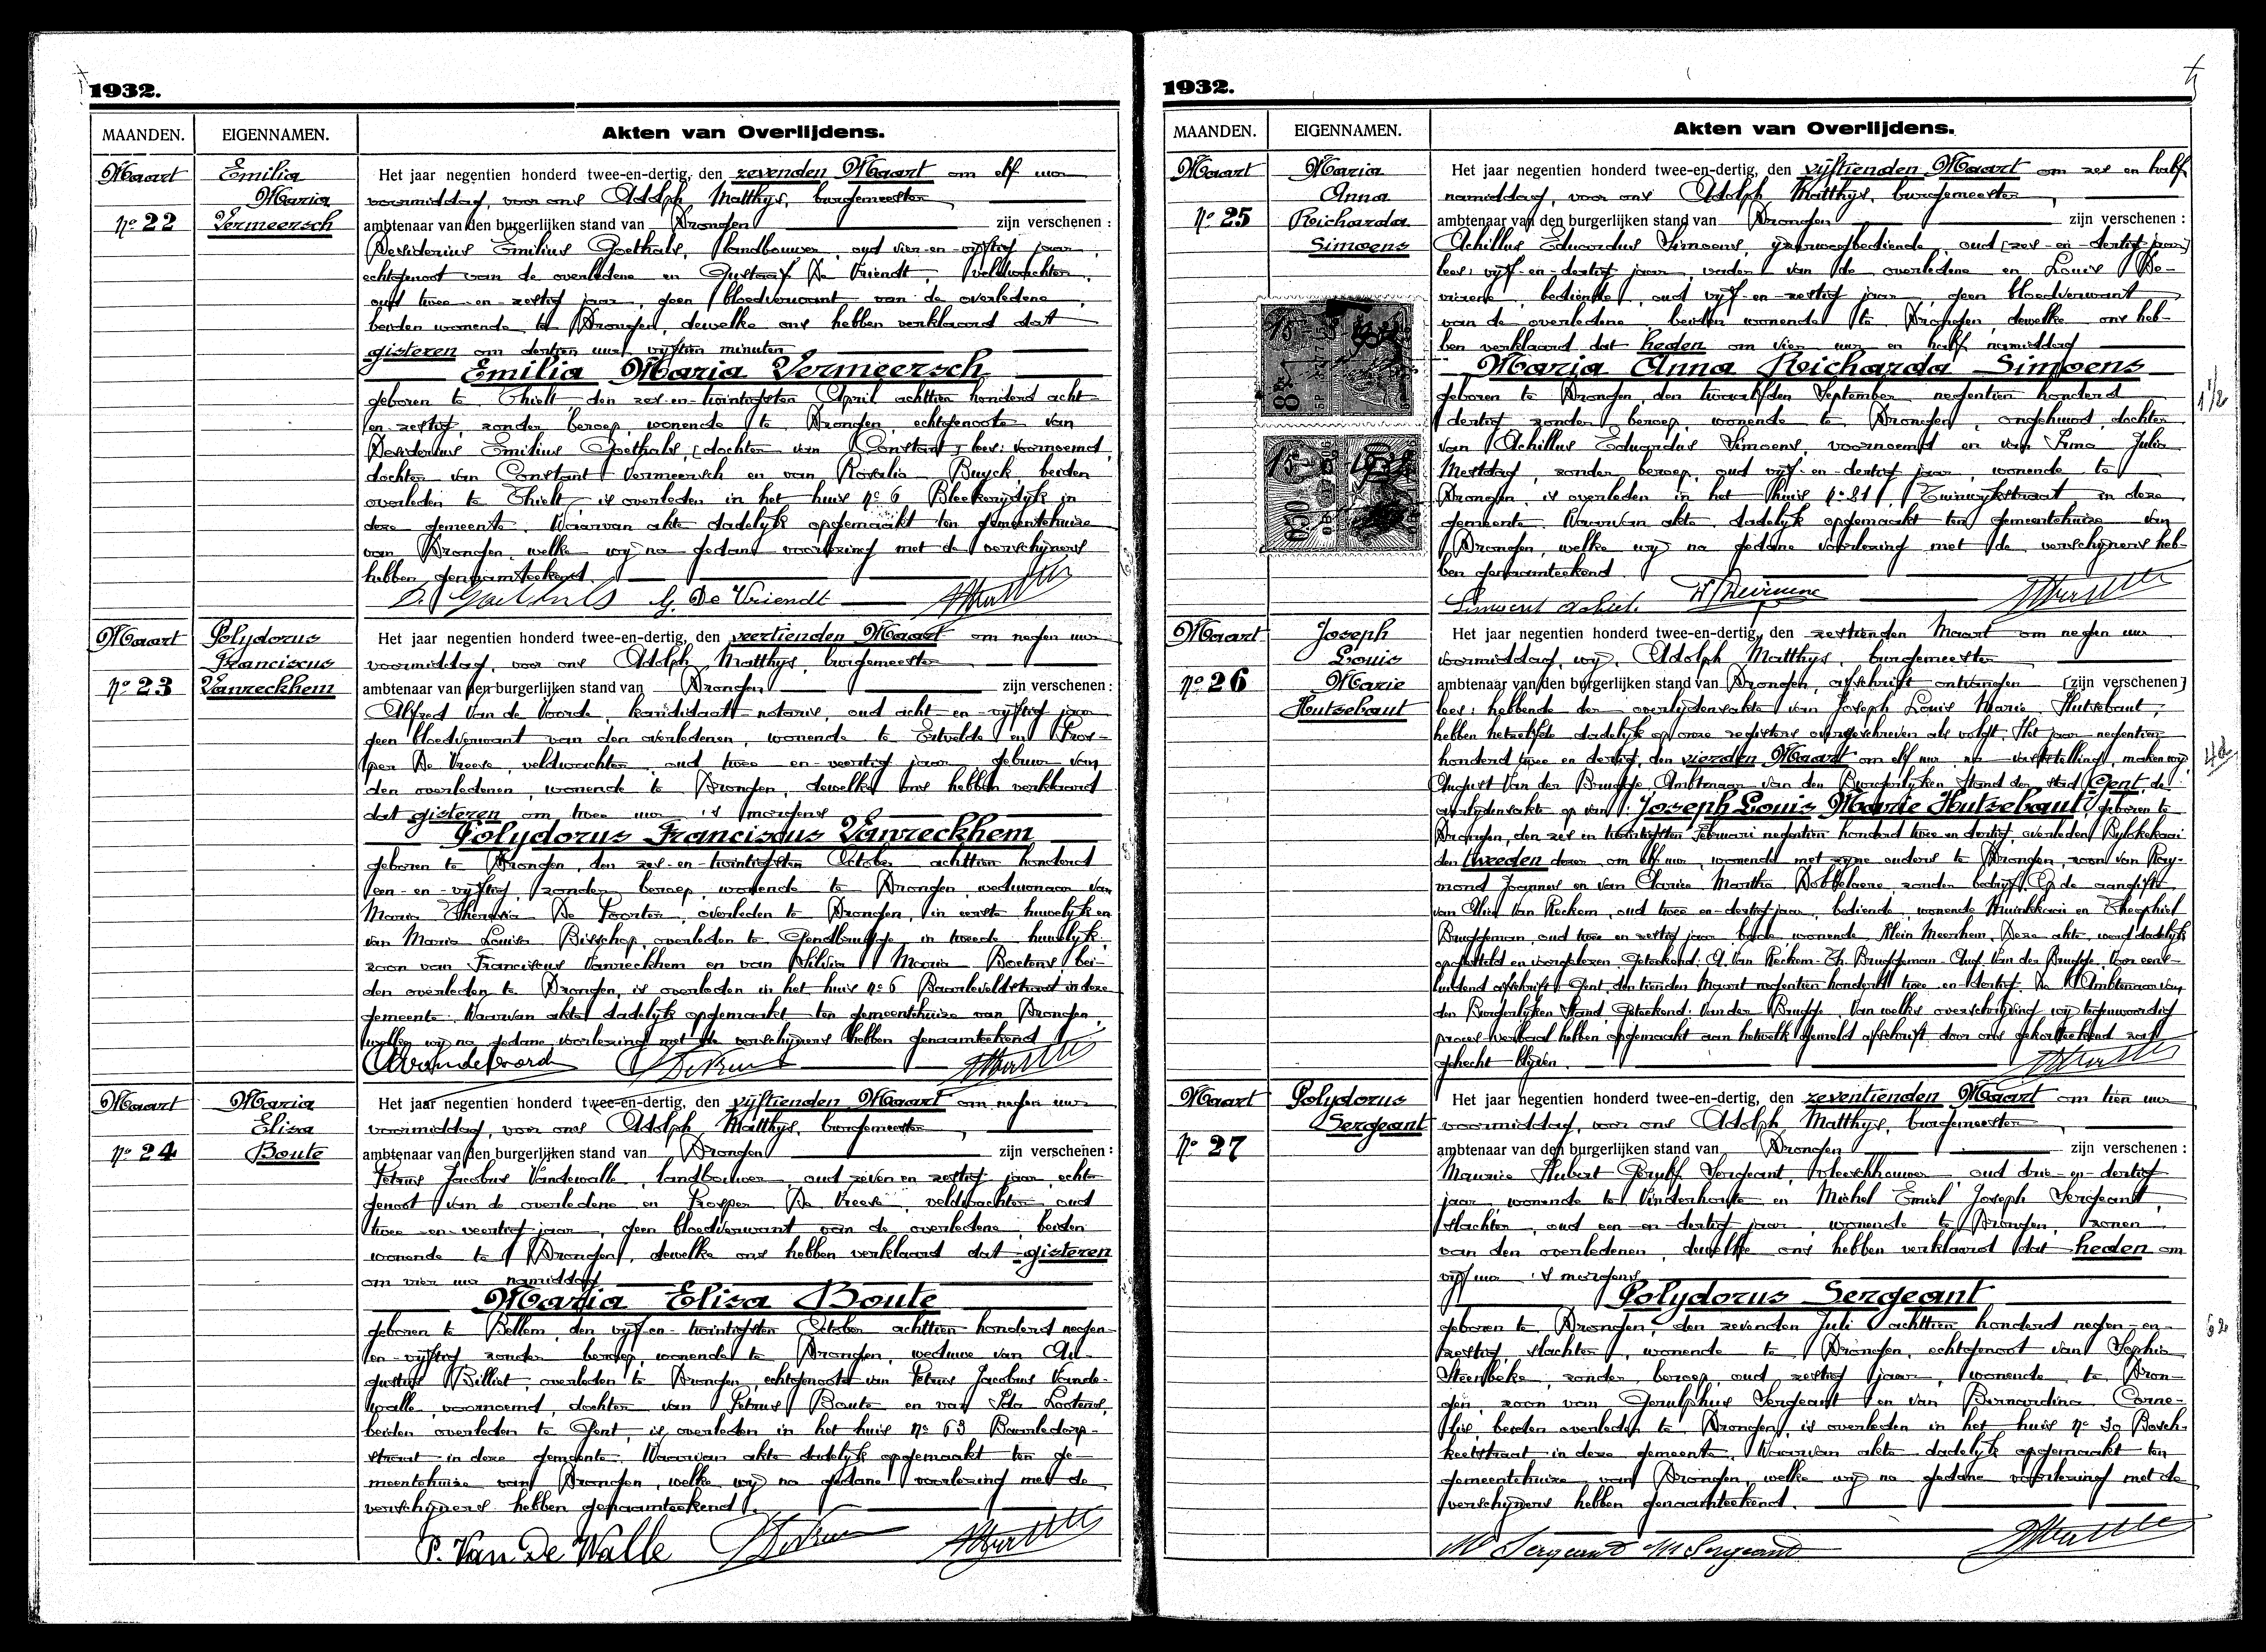 1932.
MAANDEN. EIGENNAMEN. Akten van Overlijdens.
Maart
nº 22
Emilia
Maria
Vermeersch
Het jaar negentien honderd twee-en-dertig, den zevenden Maart om elf uur
voormiddag, voor ons Adolph Matthys, burgemeester
ambtenaar van den burgerlijken stand van Drongen zijn verschenen :
Desiderius Emilius Goethals, landbouwer, oud vier-en-vijftig jaar,
echtgenoot van de overledene en Gustaaf De Vriendt, veldwachter,
oud twee-en-zestig jaar, geen bloedverwant van de overledene,
beiden wonende te Drongen, dewelke ons hebben verklaard dat
gisteren om dertien uur vijftien minuten
Emilia Maria Vermeersch
geboren te Thielt den zes-en-twintigsten April achttien honderd acht
en-zestig, zonder beroep, wonende te Drongen, echtgenoote van
Desiderius Emilius Goethals, [dochter van Constant] lees: voornoemd,
dochter van Constant Vermeersch en van Rosalia Buyck, beiden
overleden te Thielt, is overleden in het huis nº 6 Bleekerijdijk in
deze gemeente. Waarvan akte dadelijk opgemaakt ten gemeentehuize
van Drongen, welke wij na gedane voorlezing met de verschijners
hebben genaamteekend.
D. Goethals G. De Vriendt
Maart
nº 23
Polydorus
Franciscus
Vanreckhem
Het jaar negentien honderd twee-en-dertig, den veertienden Maart om negen uur
voormiddag, voor ons Adolph Matthys, burgemeester
ambtenaar van den burgerlijken stand van Drongen zijn verschenen :
Alfred Van de Voorde, kandidaat-notaris, oud acht-en-vijftig jaar
geen bloedverwant van den overledenen, wonende te Ertvelde en Pros-
per De Vreese, veldwachter, oud twee-en-veertig jaar, gebuur van
den overledenen, wonende te Drongen, dewelke ons hebben verklaard
dat gisteren om twee uur 's morgens
Polydorus Franciscus Vanreckhem
geboren te Drongen, den zes-en-twintigsten October achttien honderd
een-en-vijftig, zonder beroep, wonende te Drongen, weduwnaar van
Maria Theresia De Poorter, overleden te Drongen, in eerste huwelijk en
van Maria Louisa Bisschop, overleden te Gendbrugge, in tweede huwelijk,
zoon van Franciscus Vanreckhem en van Maria Boetens, bei-
den overleden te Drongen, is overleden in het huis nº 6 Baarleveldstraat in deze
gemeente. Waarvan akte dadelijk opgemaakt ten gemeentehuize van Drongen,
welke wij na gedane voorlezing met de verschijners hebben genaamteekend
Maart
nº 24
Maria
Eliza
Boute
Het jaar negentien honderd twee-en-dertig, den vijftienden Maart om negen uur
voormiddag, voor ons Adolph Matthys, burgemeester
ambtenaar van den burgerlijken stand van Drongen zijn verschenen :
Petrus Jacobus Vandewalle, landbouwer, oud zeven en zestig jaar, echt-
genoot van de overledene en Prosper De Vreese, veldwachter, oud
twee-en-veertig jaar, geen bloedverwant van de overledene, beiden
wonende te Drongen, dewelke ons hebben verklaard dat gisteren
om vier uur namiddag
Maria Eliza Boute
geboren te Bellem, den vijf-en-twintigsten October achttien honderd negen-
en-vijftig, zonder beroep, wonende te Drongen, weduwe van Au-
gustus Billiet, overleden te Drongen, echtgenoote van Petrus Jacobus Vande-
walle, voornoemd, dochter van Petrus Boute en van Ida Lootens,
beiden overleden te Gent, is overleden in het huis nº 63 Baarledorp-
straat in deze gemeente. Waarvan akte dadelijk opgemaakt ten ge-
meentehuize van Drongen, welke wij na gedane voorlezing met de
verschijners hebben genaamteekend.
P. Van De Walle
1932.
MAANDEN. EIGENNAMEN. Akten van Overlijdens.
Maart
nº 25
Maria
Anna
Reicharda
Simoens
Het jaar negentien honderd twee-en-dertig, den vijftienden Maart om zes en half
namiddag, voor ons Adolph Matthys, burgemeester
ambtenaar van den burgerlijken stand van Drongen zijn verschenen :
Achillus Eduardus Simoens, ijzerwegbediende, oud [zes-en-dertig jaar]
lees: vijf-en-dertig jaar, vader van de overledene en Louis De-
vriene, bediende, oud vijf-en-zestig jaar, geen bloedverwant
van de overledene, beiden wonende te Drongen, dewelke ons heb-
ben verklaard dat heden om vier uur en half namiddag
Maria Anna Reicharda Simoens
geboren te Drongen, den twaalfden September negentien honderd
dertig, zonder beroep, wonende te Drongen, ongehuwd, dochter
van Achillus Eduardus Simoens, voornoemd en van Irma Julia
Mestdag, zonder beroep, oud vijf-en-dertig jaar, wonende te
Drongen, is overleden in het huis nº 81, Tuinwijkstraat in deze
gemeente. Waarvan akte dadelijk opgemaakt ten gemeentehuize van
Drongen, welke wij na gedane voorlezing met de verschijners heb-
ben genaamteekend.
Simoens Achiel.
Maart
nº 26
Joseph
Louis
Marie
Hutsebaut
Het jaar negentien honderd twee-en-dertig, den zestienden Maart om negen uur
voormiddag, wij, Adolph Matthys, burgemeester
ambtenaar van den burgerlijken stand van Drongen, afschrift ontvangen [zijn verschenen]
lees: hebbende der overlijdensakte van Joseph Louis Marie Hutsebaut,
hebben hetzelfde dadelijk op onze registers overgeschreven als volgt: Het jaar negentien
honderd twee en dertig, den vierden Maart om elf uur, na vaststelling, maken wij
August Van der Brugge, Ambtenaar van den Burgerlijken Stand der stad Gent, de
overlijdensakte op van: Joseph Louis Marie Hutsebaut, geboren te
Drongen, den zes en twintigsten Februari negentien honderd twee en dertig, overleden Bylokekaai
den tweeden dezer om elf uur, wonende met zijne ouders te Drongen, zoon van Ray-
mond Joannes en van Clarisse Martha Dobbelaere, zonder bedrijf. Op de aangifte
van Van Reckem, oud twee en-dertig jaar, bediende, wonende en Theophiel
Bruggeman, oud twee en zestig jaar, bode, wonende Klein Meerhem. Deze akte werd dadelijk
opgesteld en voorgelezen. Geteekend: A. Van Reckem. Th. Bruggeman. Aug. Van der Brugge. Voor eens-
luidend afschrift Gent, den tienden Maart negentien honderd twee-en-dertig. De Ambtenaar van
den Burgerlijken Stand. Geteekend: Van der Brugge. Van welke overschrijving wij tegenwoordig
proces-verbaal hebben opgemaakt aan hetwelk gemeld afschrift door ons zal
gehecht blijven.
Maart
nº 27
Polydorus
Sergeant
Het jaar negentien honderd twee-en-dertig, den zeventienden Maart om tien uur
voormiddag, voor ons Adolph Matthys, burgemeester
ambtenaar van den burgerlijken stand van Drongen zijn verschenen :
Maurice Hubert Gerulf Sergeant, vleeschhouwer, oud drie-en-dertig
jaar, wonende te Vinderhoute en Michel Emiel Joseph Sergeant,
slachter, oud een-en-dertig jaar, wonende te Drongen, zonen
van den overledenen, dewelke ons hebben verklaard dat heden om
vijf uur 's morgens
Polydorus Sergeant
geboren te Drongen, den zevenden Juli achttien honderd negen-en-
zestig, slachter, wonende te Drongen, echtgenoot van Sophia
Steenbeke, zonder beroep, oud zestig jaar, wonende te Dron-
gen, zoon van Gerulphus Sergeant en van Bernardina Corne-
lis, beiden overleden te Drongen, is overleden in het huis nº 30 Bosch-
keetstraat in deze gemeente. Waarvan akte dadelijk opgemaakt ten
gemeentehuize van Drongen, welke wij na gedane voorlezing met de
verschijners hebben genaamteekend.
M Sergeant M Sergeant